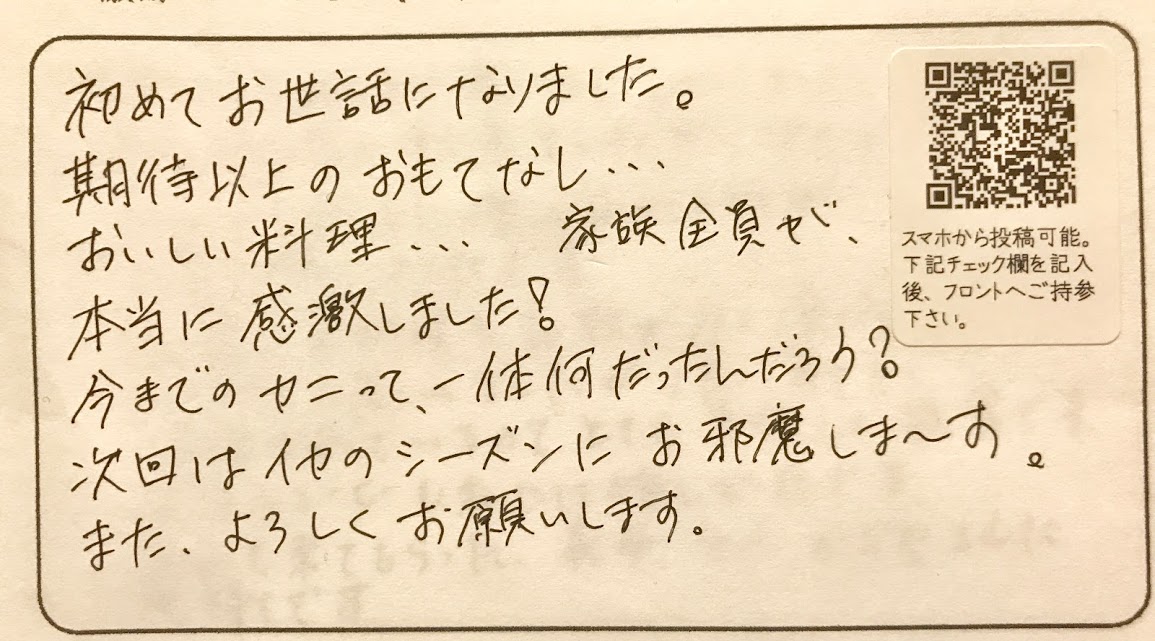 初めてお世話になりました。
期待以上のおもてなし・・・
おいしい料理・・・ 家族全員が、
本当に感激しました!
今までのカニって、一体何だったんだろう?
次回は他のシーズンにお邪魔しま〜す。
また、よろしくお願いします。
スマホから投稿可能。
下記チェック欄を記入
後、フロントへご持参
下さい。